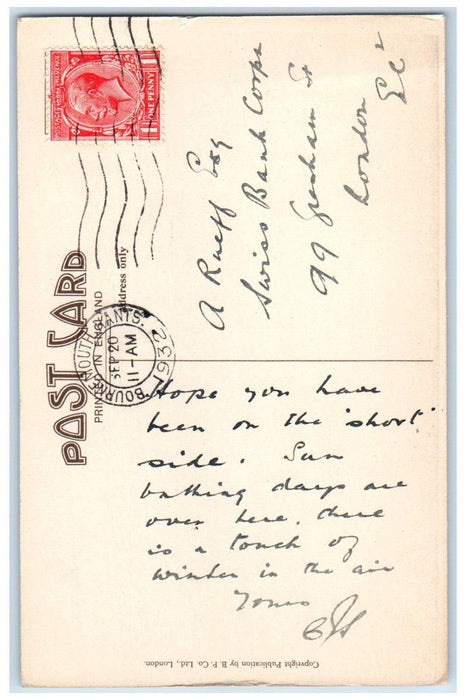 POSTAGE REVENUE
ONE PENNY
POST CARD
PRINTED IN ENGLAND
Address only
BOURNEMOUTH. HANTS.
SEP 20
11-AM
1932
A Rueff Esq
Swiss Bank Corpn
99 Gresham St
London
EC2
Hope you have
been on the 'short'
side. Sun
bathing days are
over here, there
is a touch of
winter in the air
Yours
Copyright Publication by B. P. Co. Ltd., London.